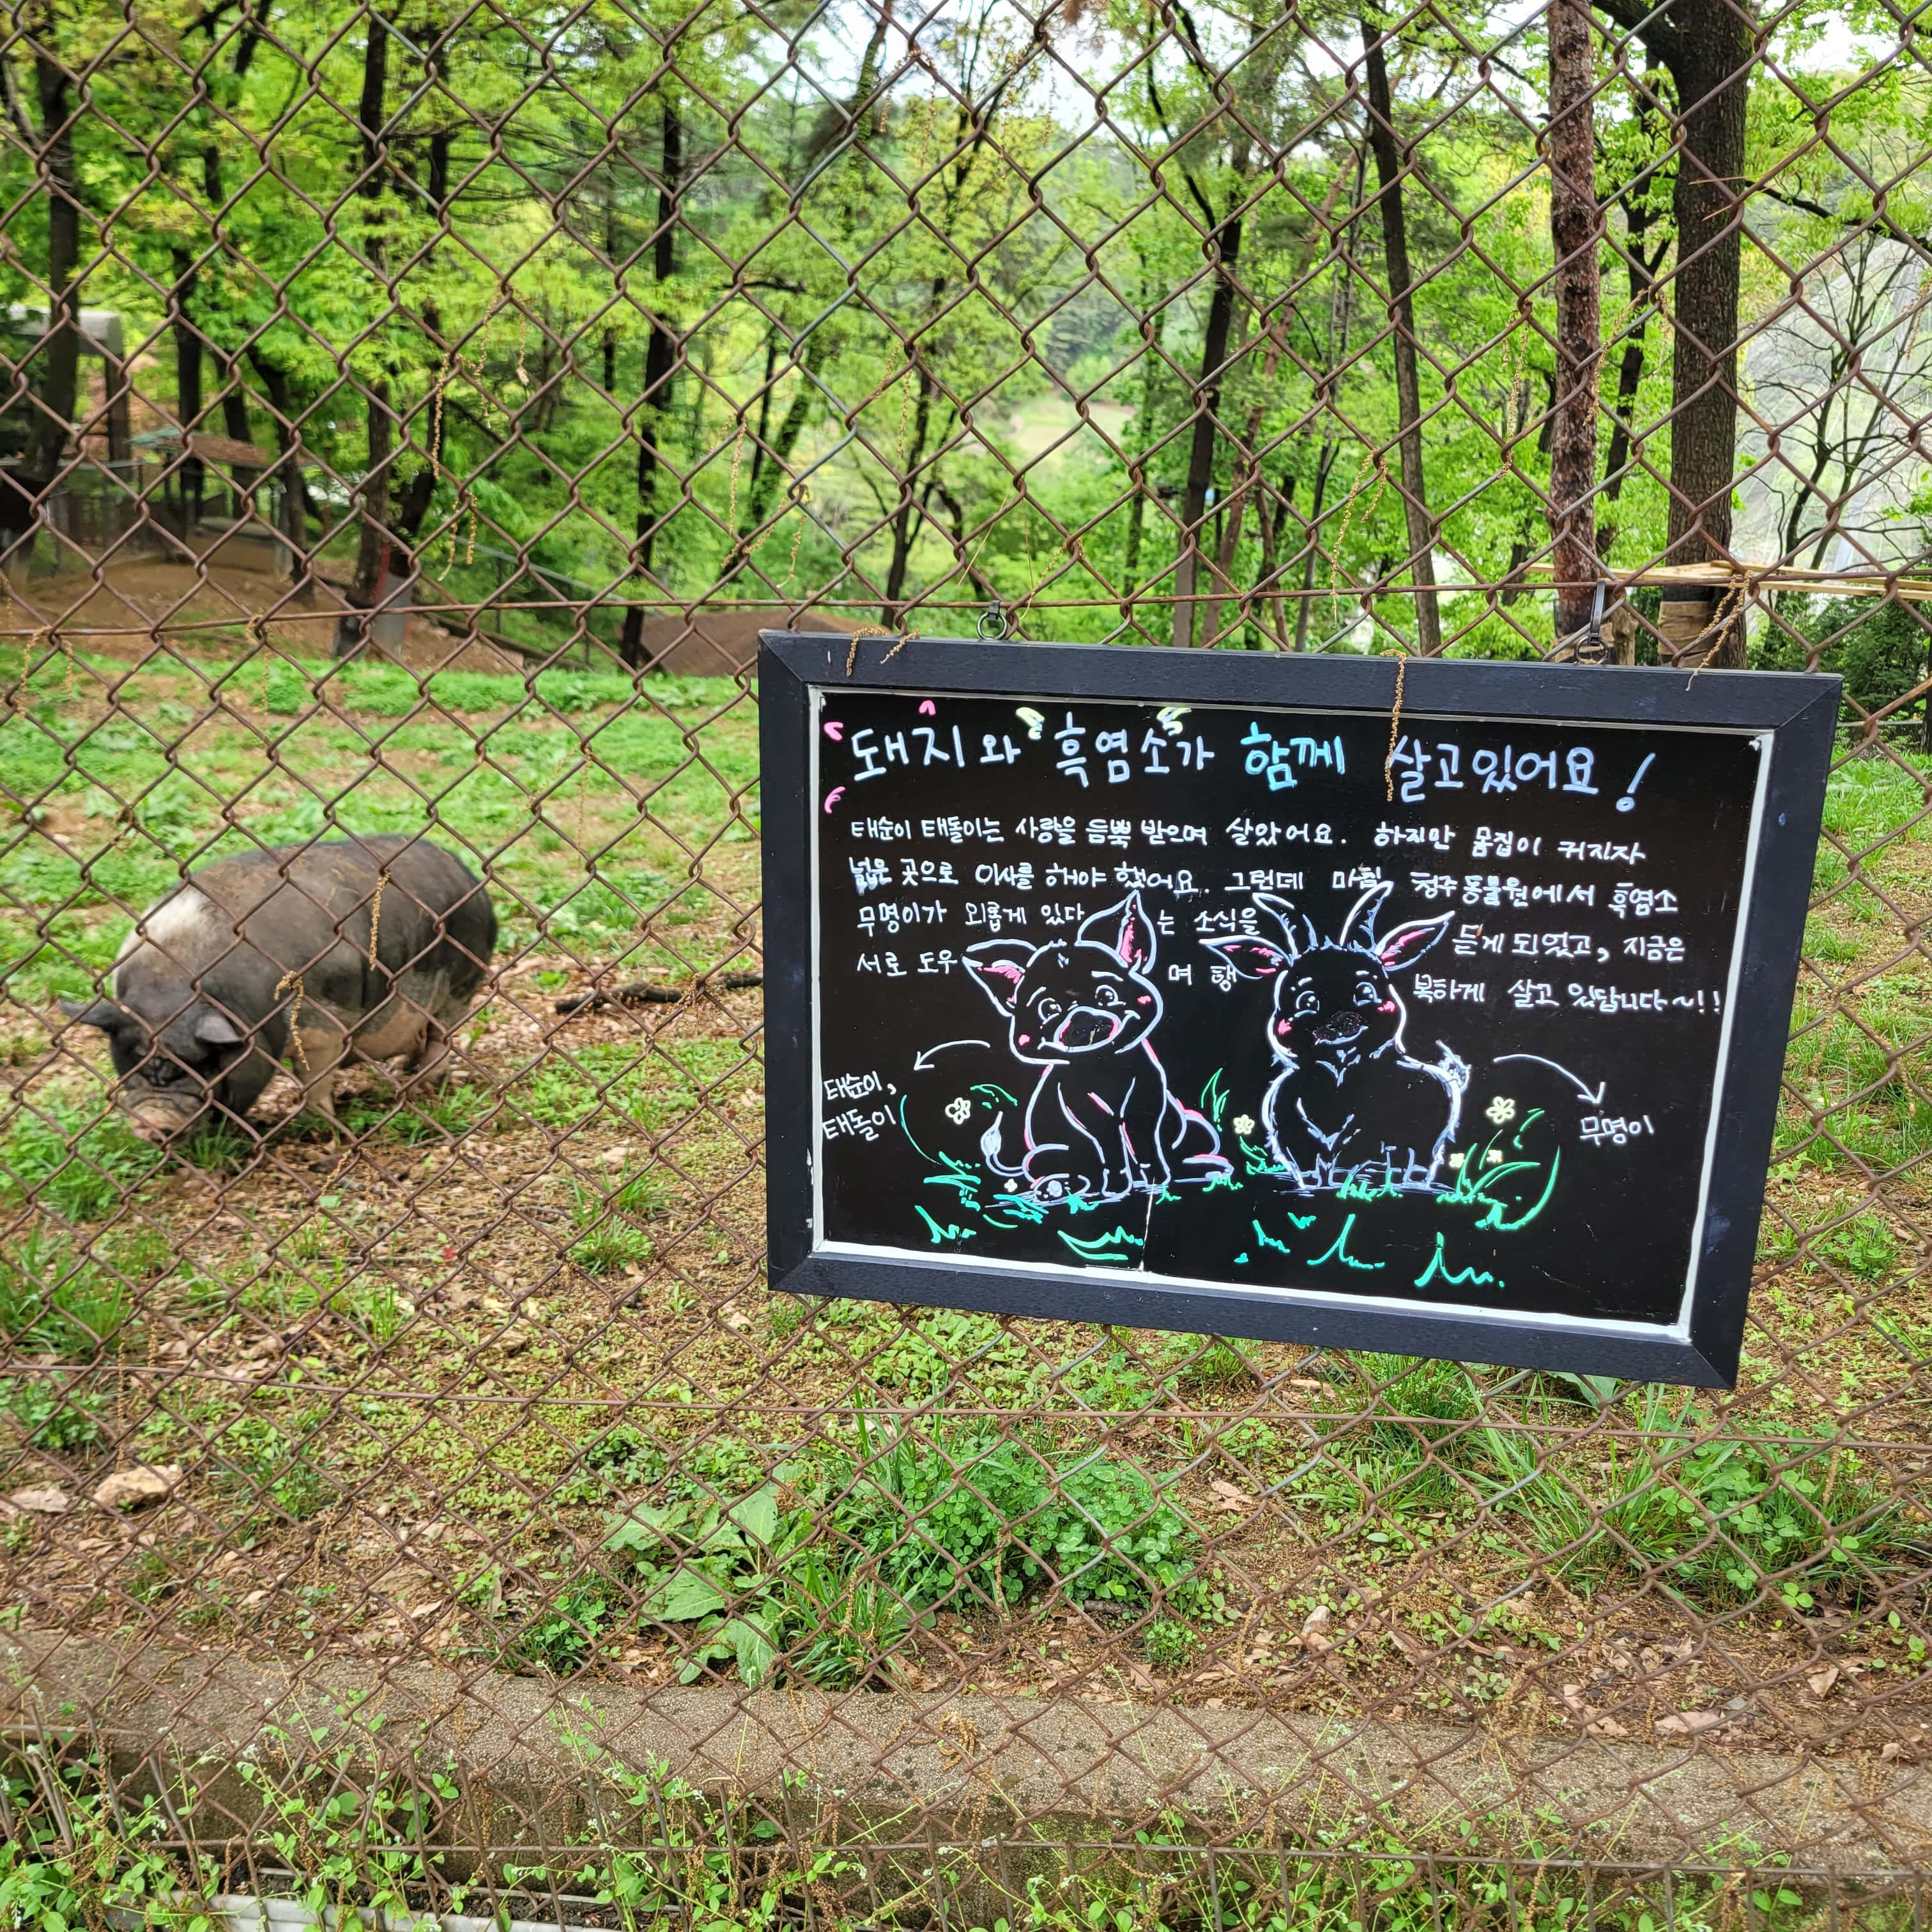 돼지와 흑염소가 함께 살고있어요!
태순이 태돌이는 사랑을 듬뿍 받으며 살았어요. 하지만 몸집이 커지자
넓은 곳으로 이사를 해야 했어요. 그런데 마침 청주동물원에서 흑염소
무명이가 외롭게 있다는 소식을 듣게 되었고, 지금은
서로 도우며 행복하게 살고 있답니다~!!
태순이,
태돌이
무명이